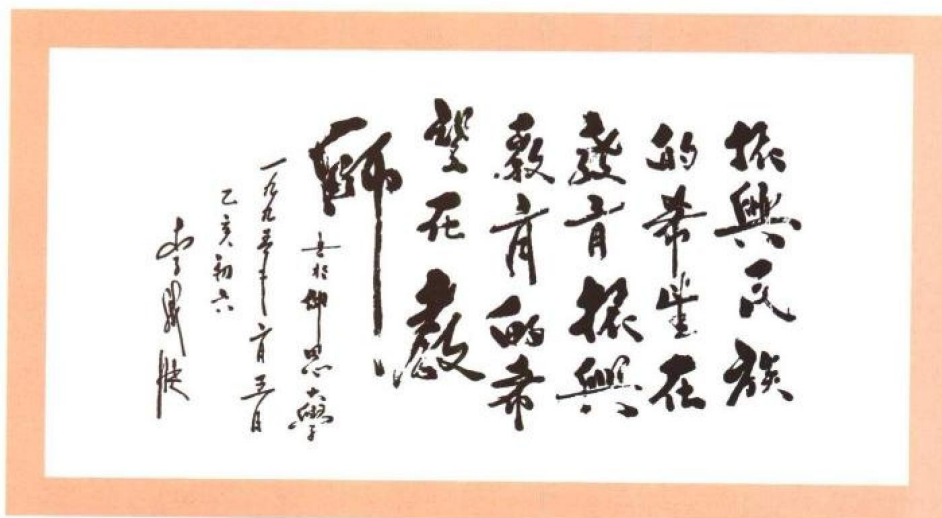 振興民族
的希望在
教育振興
教育的希
望在教
師
書於 思大學
一九九五年二月五日
乙亥初六
李